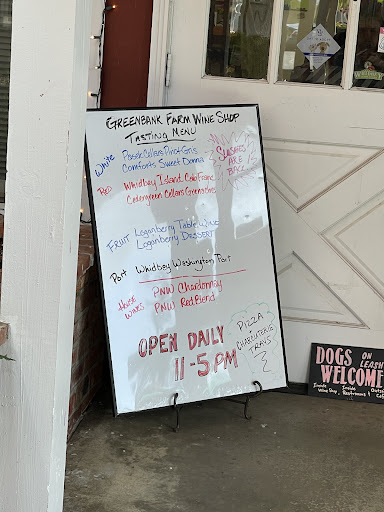 GREENBANK FARM WINE SHOP
TASTING MENU
White
Posse Cellars Pinot Gris
Comforts Sweet Donna
SLUSHIES
ARE
BACK
RED
Whidbey Island Cab Franc
Cedergreen Cellars Grenache
FRUIT
Loganberry Table Wine
Loganberry DESSERT
Port
Whidbey Washington Port
House
WINES
PNW Chardonnay
PNW Red Blend
OPEN DAILY
11-5 PM
PIZZA
+
CHARCUTERIE
TRAYS
DOGS ON LEASH
WELCOME
Inside
Wine Shop
Inside
Restrooms